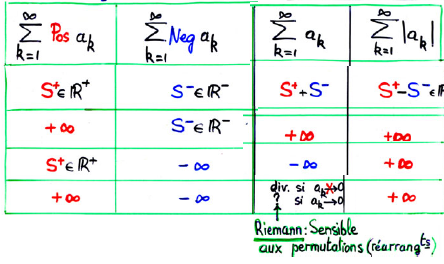 ∞ ∑ k=1 Pos aₖ | ∞ ∑ k=1 Neg aₖ | ∞ ∑ k=1 aₖ | ∞ ∑ k=1 |aₖ|
S⁺∈ℝ⁺ | S⁻∈ℝ⁻ | S⁺+S⁻ | S⁺-S⁻∈ℝ
+∞ | S⁻∈ℝ⁻ | +∞ | +∞
S⁺∈ℝ⁺ | -∞ | -∞ | +∞
+∞ | -∞ | div. si aₖ↛0 | +∞
? si aₖ→0
Riemann: Sensible
aux permutations (réarrangᵗˢ)